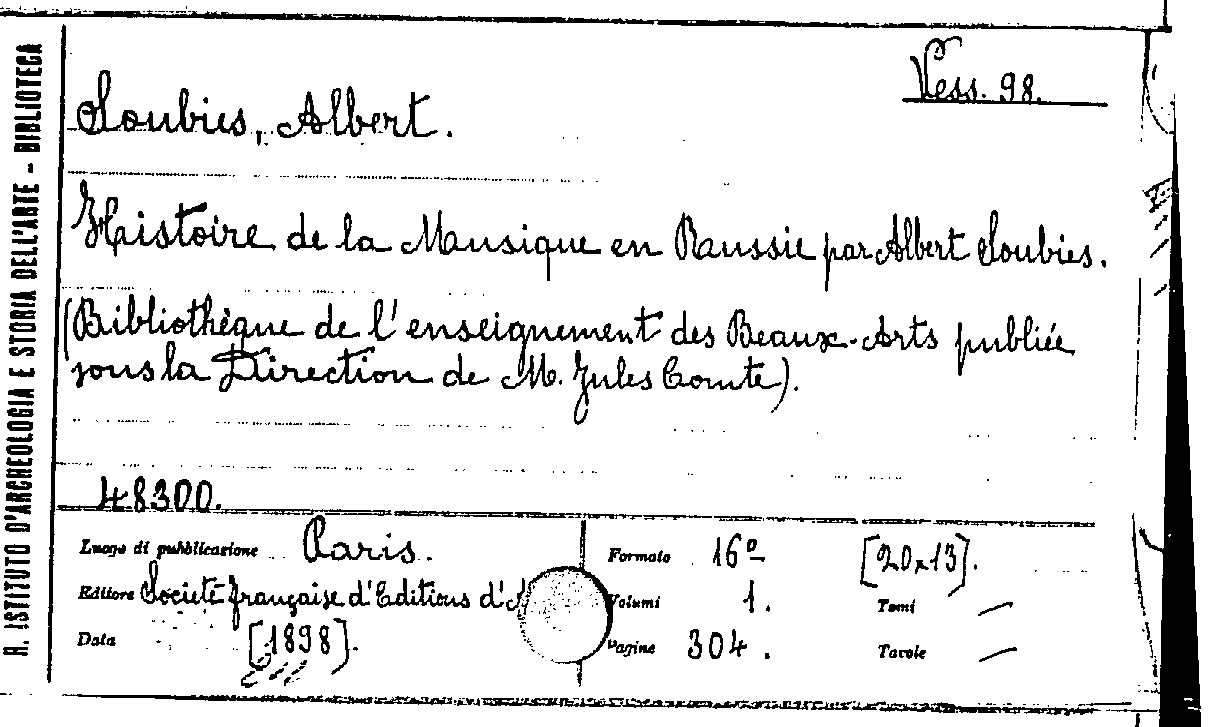 R. ISTITUTO D'ARCHEOLOGIA E STORIA DELL'ARTE - BIBLIOTECA
Vess. 98.
Soubies, Albert.
Histoire de la Musique en Russie par Albert Soubies.
(Bibliothèque de l'enseignement des Beaux-Arts publiée
sous la Direction de M. Jules Comte).
48300.
Luogo di pubblicazione Paris. Formato 16º [20x13].
Editore Societé française d'Editions d' Volumi 1. Tomi —
Data [1898]. Pagine 304. Tavole —